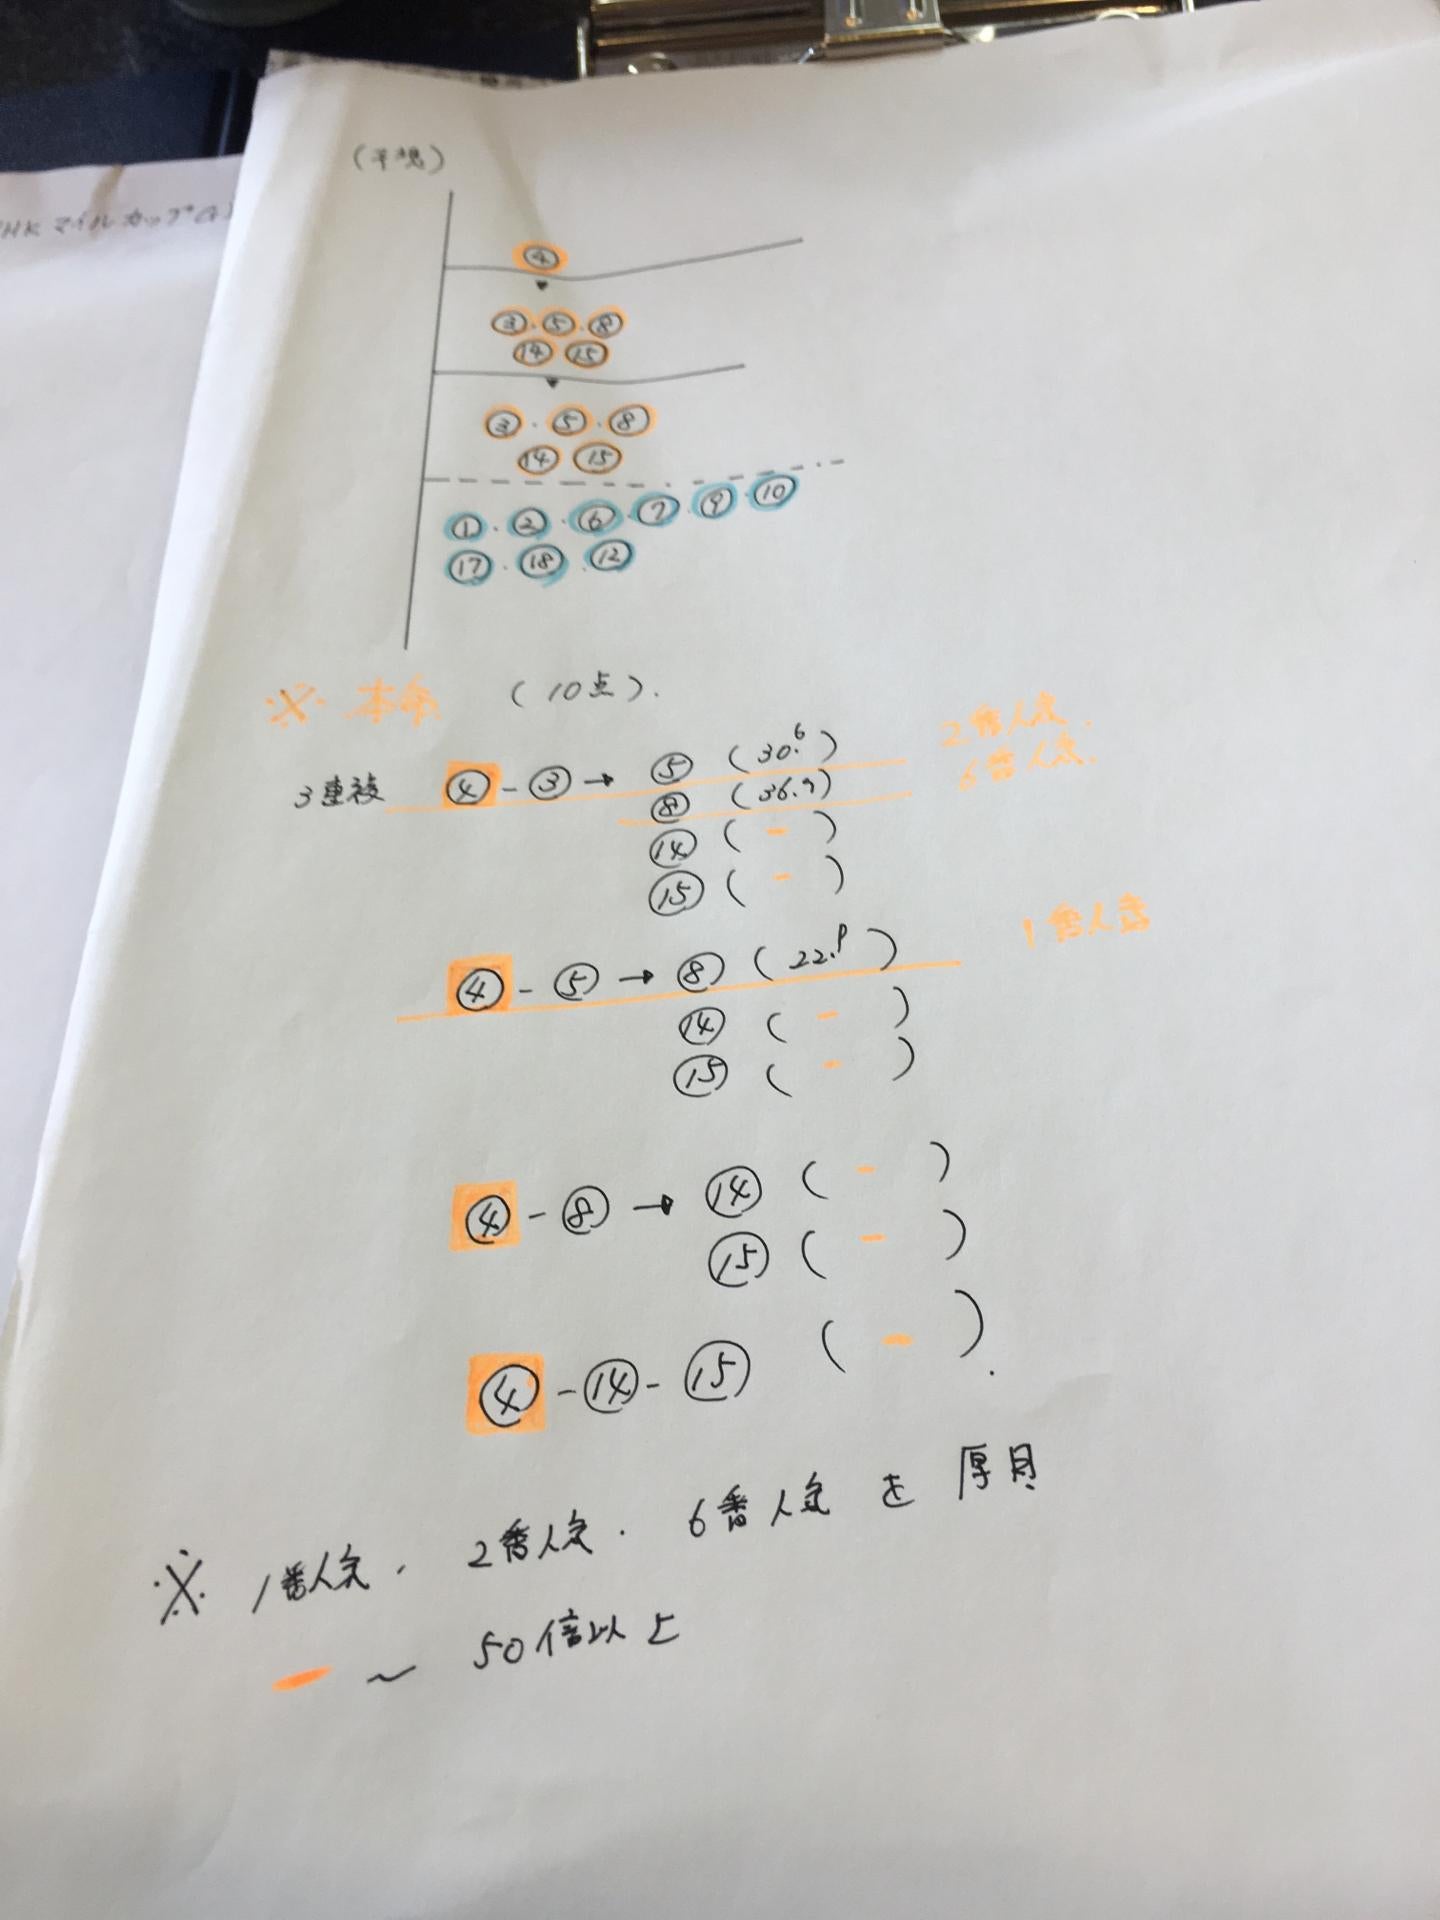 (予想)
NHK マイルカップG1
④
③・⑤・⑧
⑭ ⑮
③・⑤・⑧
⑭ ⑮
①・②・⑥・⑦・⑨・⑩
⑰・⑱・⑫
※ 本命 (10点).
3連複 ④-③→⑤ (30.6) 2番人気.
⑧ (36.9) 6番人気.
⑭ (-)
⑮ (-)
④-⑤→⑧ (22.9) 1番人気
⑭ (-)
⑮ (-)
④-⑧→⑭ (-)
⑮ (-)
④-⑭-⑮ (-).
※ 1番人気, 2番人気. 6番人気を厚目
- ~ 50倍以上